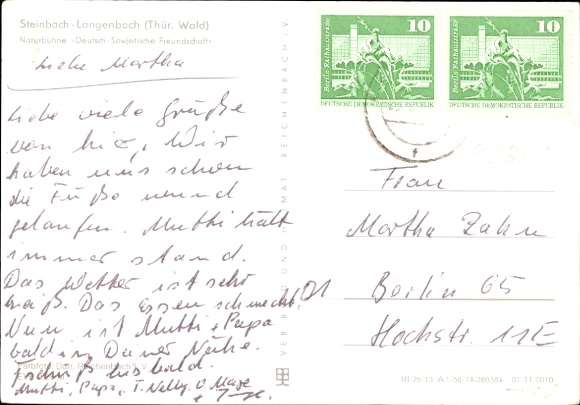 Steinbach-Langenbach (Thür. Wald)
Naturbühne »Deutsch-Sowjetische Freundschaft«
Liebe Martha
Liebe viele Grüße
von hier, Wir
haben uns schon
die Füße wund
gelaufen. Mutti hält
immer stand.
Das Wetter ist sehr
naß. Das Essen schmeckt.
Nun ist Mutti + Papa
bald in Deiner Nähe.
Tschüß bis bald.
Mutti, Papa, T. Nelly
Farbfoto: Darr, Reichenbach i. V.
VERLAG BILD UND HEIMAT REICHENBACH I. V.
10
Berlin, Rathausstraße
DEUTSCHE DEMOKRATISCHE REPUBLIK
10
Berlin, Rathausstraße
DEUTSCHE DEMOKRATISCHE REPUBLIK
Frau
Martha Zahn
Berlin 65
Hochstr. 11E
01 11 0010